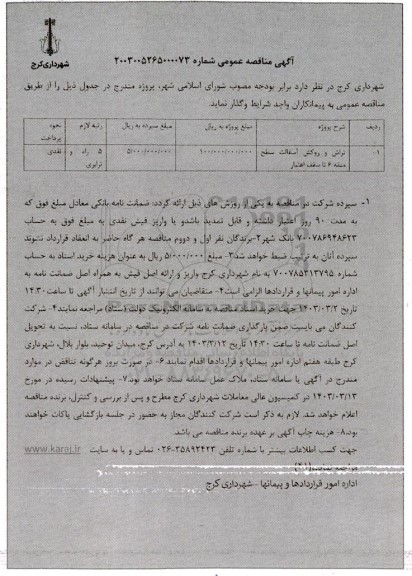 شهرداری کرج
آگهی مناقصه عمومی شماره ۲۰۰۳۰۰۵۲۶۵۰۰۰۰۷۳
شهرداری کرج در نظر دارد برابر بودجه مصوب شورای اسلامی شهر، پروژه مندرج در جدول ذیل را از طریق
مناقصه عمومی به پیمانکاران واجد شرایط واگذار نماید
ردیف شرح پروژه مبلغ پروژه به ریال مبلغ سپرده به ریال رتبه لازم نحوه پرداخت
۱- تراش و روکش آسفالت سطح منطقه ۶ تا سقف اعتبار ۱۰۰/۰۰۰/۰۰۰/۰۰۰ ۵/۰۰۰/۰۰۰/۰۰۰ ۵ راه و ترابری نقدی
۱- سپرده شرکت در مناقصه به یکی از روش های ذیل ارائه گردد: ضمانت نامه بانکی معادل مبلغ فوق که
به مدت ۹۰ روز اعتبار داشته و قابل تمدید باشد و یا واریز فیش نقدی به مبلغ فوق به حساب
۷۰۰۷۸۶۹۴۸۶۲۳ بانک شهر ۲- برندگان نفر اول و دووم مناقصه هر گاه حاضر به انعقاد قرارداد نشوند
سپرده آنان به ترتیب ضبط خواهد شد. ۳- مبلغ ۵/۰۰۰/۰۰۰ ریال به عنوان هزینه خرید اسناد به حساب
شماره ۷۰۰۷۸۵۳۱۳۷۹۵ به نام شهرداری کرج واریز و ارائه اصل فیش به همراه اصل ضمانت نامه به
اداره امور پیمانها و قراردادها الزامی است ۴- متقاضیان می توانند از تاریخ انتشار آگهی تا ساعت ۱۴:۳۰
تاریخ ۱۴۰۳/۰۳/۲ جهت خرید اسناد مناقصه به سامانه الکترونیک دولت (ستاد) مراجعه نمایند ۴- شرکت
کنندگان می بایست ضمن بارگذاری ضمانت نامه شرکت در مناقصه در سامانه ستاد، نسبت به تحویل
اصل ضمانت نامه تا ساعت ۱۴:۳۰ تاریخ ۱۴۰۳/۳/۱۲ به آدرس کرج، میدان توحید، بلوار بلال، شهرداری
کرج طبقه هفتم اداره امور پیمانها و قراردادها اقدام نمایند ۶- در صورت بروز هرگونه تناقض در موارد
مندرج در آگهی با سامانه ستاد، ملاک عمل سامانه ستاد خواهد بود. ۷- پیشنهادات رسیده در مورخ
۱۴۰۳/۰۳/۱۳ در کمیسیون عالی معاملات شهرداری کرج مطرح و پس از بررسی و کنترل، برنده مناقصه
اعلام خواهد شد. لازم به ذکر است شرکت کنندگان مجاز به حضور در جلسه بازگشایی پاکات خواهند
بود. ۸- هزینه چاپ آگهی بر عهده برنده مناقصه می باشد.
جهت کسب اطلاعات بیشتر با شماره تلفن ۳۵۸۹۲۴۲۳-۰۲۶ تماس و یا به سایت www.karaj.ir
اداره امور قراردادها و پیمانها - شهرداری کرج